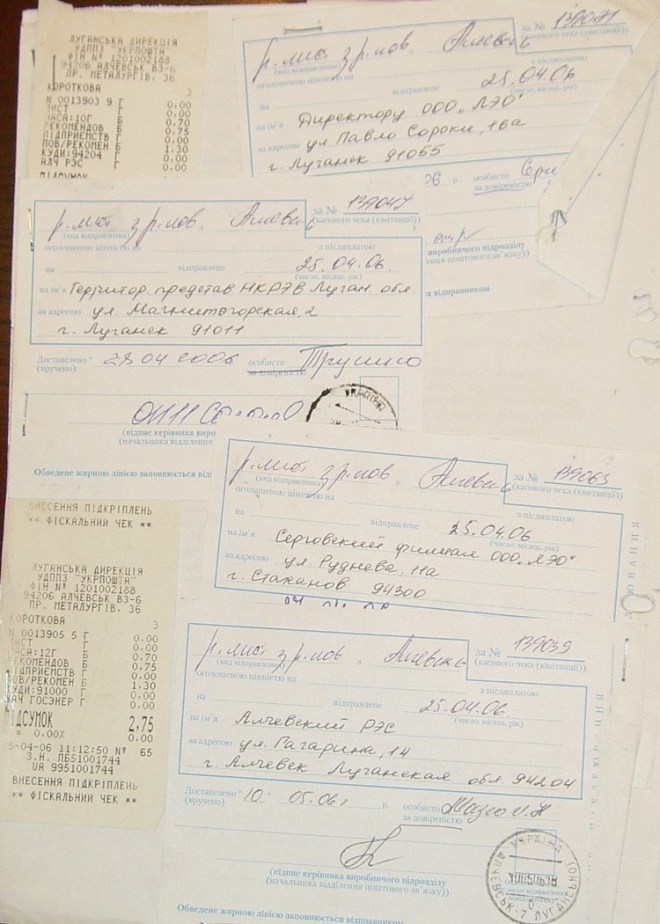 ЛУГАНСЬКА ДИРЕКЦІЯ
УДППЗ "УКРПОШТА"
ФІН № 1201002188
94206 АЛЧЕВСЬК ВЗ-6
ПР. МЕТАЛУРГІВ, 36
КОРОТКОВА 3
N 0013903 9 Г 0.00
ЛИСТ 0.00
МАСА:10Г Б 0.70
РЕКОМЕНДОВ Б 0.75
ПІДПРИЄМСТВ Г 0.00
ПОВ/РЕКОМЕН Б 1.30
КУДИ:94204 Г 0.00
АЛЧ РЭС 0.00
ПІДСУМОК
р.лист з р.пов. Алчевськ
за № 139041
(касового чека (квитанції))
(вид відправлення)
оголошеною цінністю на з післяплатою
на відправлене 25.04.06
(число, місяць, рік)
на ім'я Директору ООО „ЛЭО"
за адресою ул. Павло Сороки, 16а
г. Луганск 91055
особисто
за довіреністю
виробничого підрозділу
р.лист з р.пов. Алчевськ
за № 139047
(касового чека (квитанції))
(вид відправлення)
оголошеною цінністю на з післяплатою
на відправлене 25.04.06.
(число, місяць, рік)
на ім'я Территор. представ НКРЭВ Луган. обл.
за адресою ул. Магнитогорская, 2
г. Луганск 91011
Доставлено 28 04 2006 особисто
(вручено) за довіреністю
(підпис керівника виро
(начальника відділен
Обведене жирною лінією заповнюється від
р.лист з р.пов. Алчевськ
за № 139063
(касового чека (квитанції))
(вид відправлення)
оголошеною цінністю на з післяплатою
на відправлене 25.04.06
(число, місяць, рік)
на ім'я Серговский филиал ООО „ЛЭО"
за адресою ул. Руднева, 11а
г. Стаханов 94300
ВНЕСЕННЯ ПІДКРІПЛЕНЬ
** ФІСКАЛЬНИЙ ЧЕК **
ЛУГАНСЬКА ДИРЕКЦІЯ
УДППЗ "УКРПОШТА"
ФІН № 1201002188
94206 АЛЧЕВСЬК ВЗ-6
ПР. МЕТАЛУРГІВ, 36
КОРОТКОВА 3
N 0013905 5 Г 0.00
ЛИСТ 0.00
МАСА:12Г Б 0.70
РЕКОМЕНДОВ Б 0.75
ПІДПРИЄМСТВ Г 0.00
ПОВ/РЕКОМЕН Б 1.30
КУДИ:91000 Г 0.00
НАЧ ГОСЭНЕР Г 0.00
ПІДСУМОК 2,75
= 0.00% 0.00
5-04-06 11:12:50 № 65
З.Н. ПБ51001744
UA 9951001744
ВНЕСЕННЯ ПІДКРІПЛЕНЬ
** ФІСКАЛЬНИЙ ЧЕК **
р.лист з р.пов. Алчевськ
за № 139039
(касового чека (квитанції))
(вид відправлення)
оголошеною цінністю на з післяплатою
на відправлене 25.04.06
(число, місяць, рік)
на ім'я Алчевский РЭС
за адресою ул. Гагарина, 14
г. Алчевск Луганская обл. 94204
Доставлено 10 05.06 р. особисто
(вручено) за довіреністю
(підпис керівника виробничого підрозділу
(начальника відділення поштового зв'язку))
Обведене жирною лінією заповнюється відправником
УКРАЇНА
АЛЧЕВСЬК-7 ЛУГАНСЬКОЇ